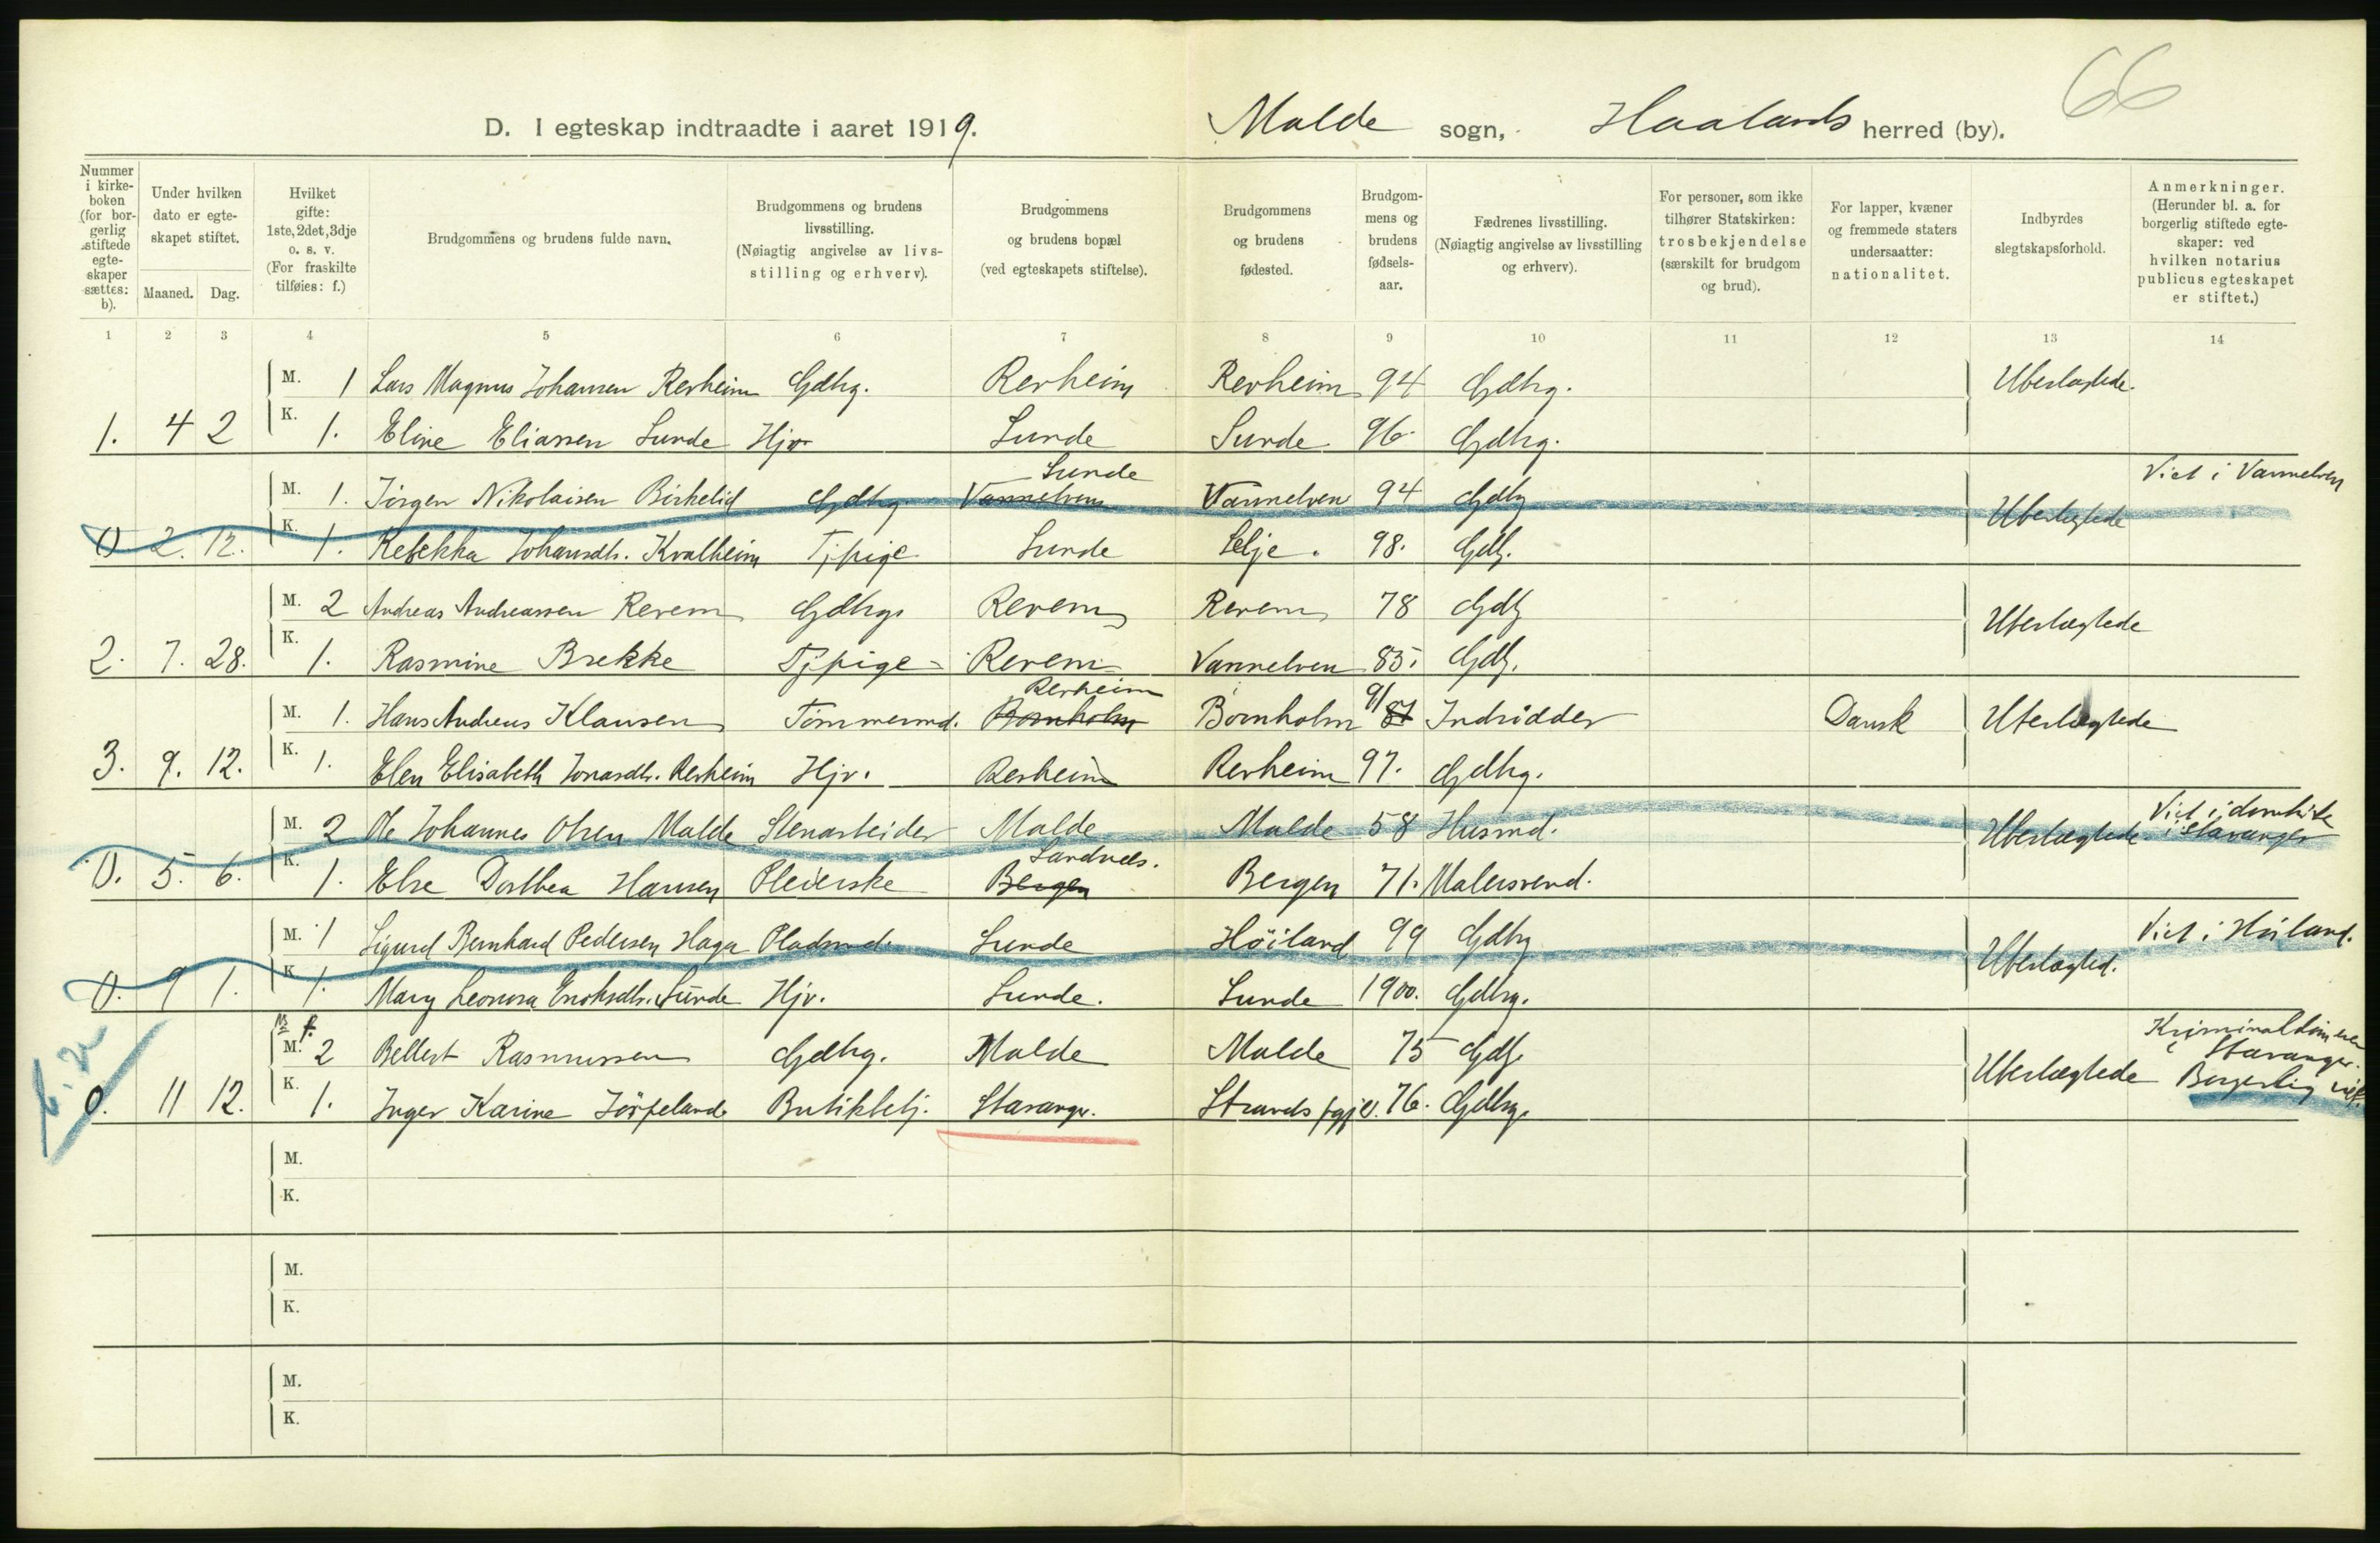 66
D. I egteskap indtraadte i aaret 1919. Malde sogn, Haalands herred (by).
Nummer i kirkeboken (for borgerlig stiftede egteskaper sættes: b). Under hvilken dato er egteskapet stiftet. Maaned. Dag. Hvilket gifte: 1ste, 2det, 3dje o. s. v. (For fraskilte tilføies: f.) Brudgommens og brudens fulde navn. Brudgommens og brudens livsstilling. (Nøiagtig angivelse av livsstilling og erhverv). Brudgommens og brudens bopæl (ved egteskapets stiftelse). Brudgommens og brudens fødested. Brudgommens og brudens fødselsaar. Fædrenes livsstilling. (Nøiagtig angivelse av livsstilling og erhverv). For personer, som ikke tilhører Statskirken: trosbekjendelse (særskilt for brudgom og brud). For lapper, kvæner og fremmede staters undersaatter: nationalitet. Indbyrdes slegtskapsforhold. Anmerkninger. (Herunder bl. a. for borgerlig stiftede egteskaper: ved hvilken notarius publicus egteskapet er stiftet.)
1 2 3 4 5 6 7 8 9 10 11 12 13 14
M. 1 Lars Magnus Johansen Revheim Gdbrg. Revheim Revheim 94 Gdbrg. Ubeslægtede.
1. 4 2 K. 1. Eline Eliassen Sunde Hjv. Sunde Sunde 96. Gdbrg.
Sunde Viet i Vannelven
M. 1. Jörgen Nikolaisen Birkelid Gdbrg. Vannelven Vannelven 94 Gdbg Ubeslegtede
0 2. 12. K. 1. Rebekka Johansdtr. Kvalheim Tj.pige Sunde Selje. 98. Gdb.
M. 2 Andreas Andreassen Revem Gdbrg. Revem Revem 78 Gdb Ubeslægtede
2. 7. 28. K. 1. Rasmine Brekke Tjpige Revem Vannelven 85. Gdb.
Revheim
M. 1. Hans Andreas Klausen Tømmermd. Bornholm Bornholm 91 87 Indsidder Dansk Ubeslægtede
3. 9. 12. K. 1. Elen Elisabeth Jonasdtr. Revheim Hjv. Revheim Revheim 97. Gdbrg.
M. 2 Ole Johannes Olsen Malde Stenarbeider Malde Malde 58 Husmd. Ubeslægtede Viet i domkirke i Stavanger
Sandnes.
0. 5. 6. K. 1. Else Dorthea Hansen Pleierske Bergen Bergen 71. Malersvend.
M. 1 Sigurd Bernhard Pedersen Haga Pladsmd. Sunde Høiland 99 Gdbg Ubeslægted. Viet i Høiland.
0. 9 1. K. 1. Mary Leonora Enoksdtr. Sunde Hjv. Sunde. Sunde 1900. Gdbrg.
M. f. 2 Bellest Rasmussen Gdbrg. Malde Malde 75 Gdb. Ubeslægtede Stavanger. Borgerlig viet.
0. 11 12. K. 1. Inger Karine Jörpeland Butikbetj. Stavanger. Strands pgjld. 76. Gdbrg.
M.
K.
M.
K.
M.
K.